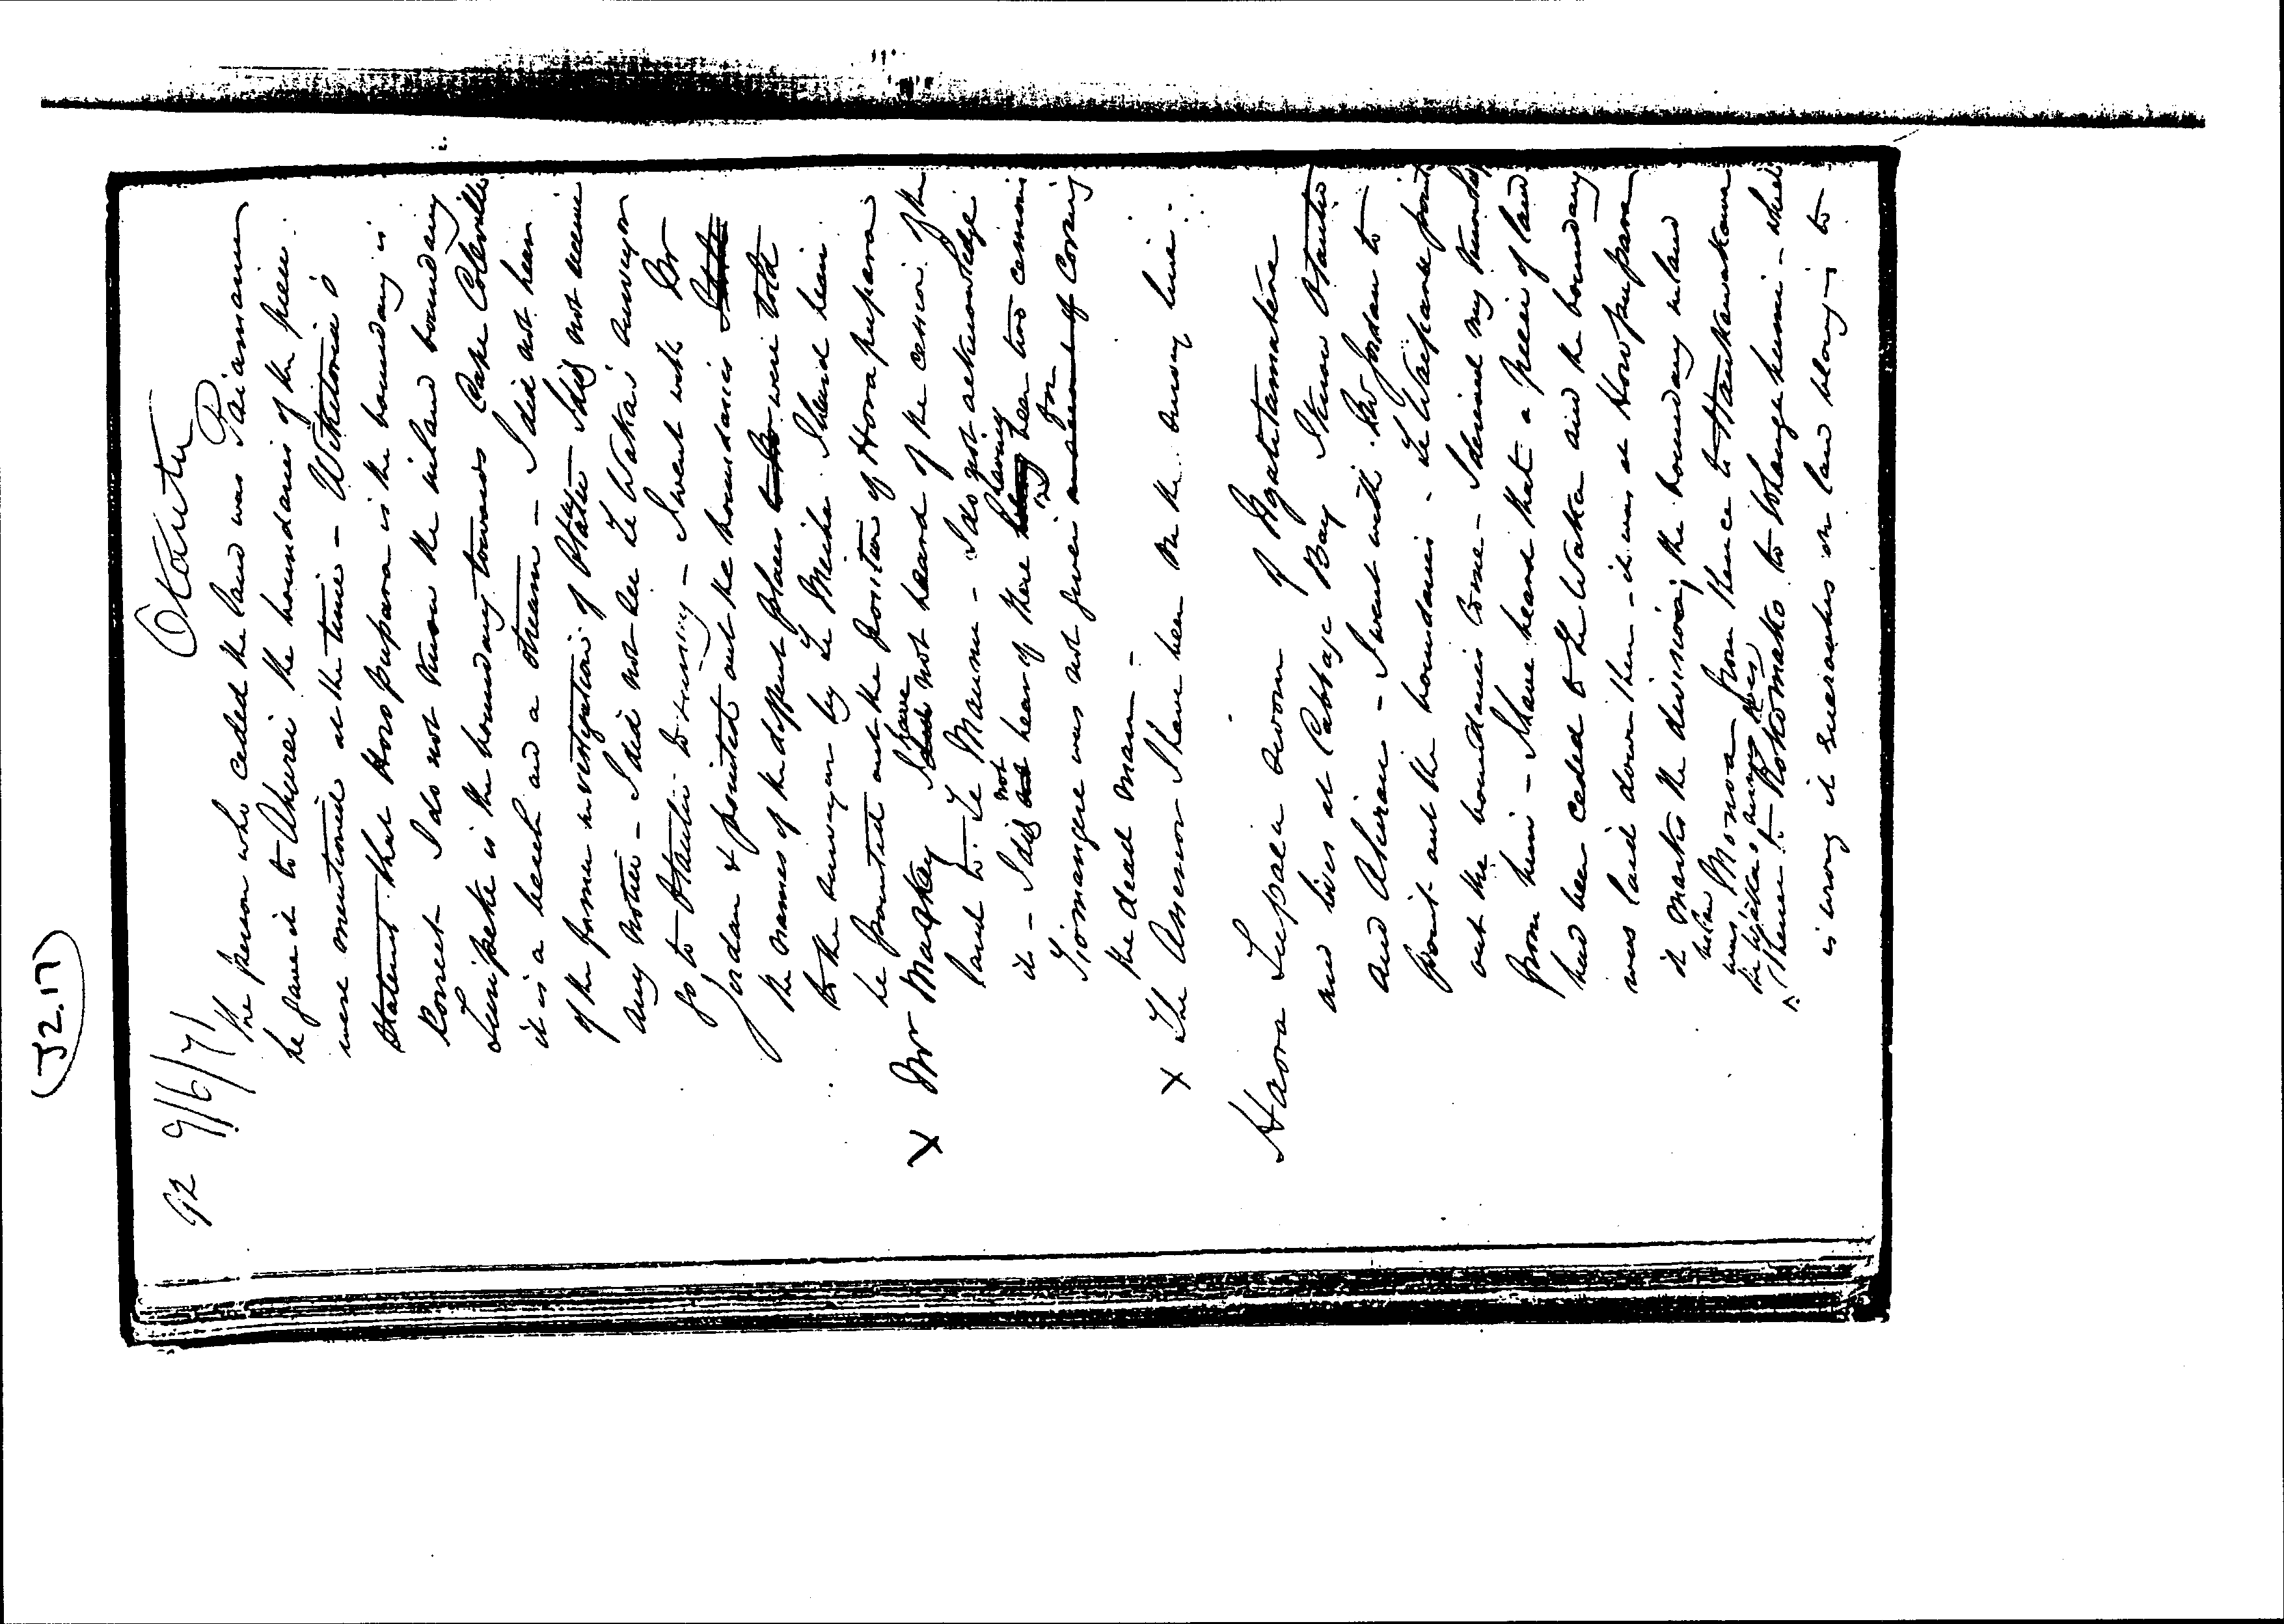 (J2.17)
92 9/6/71 Otautu
The person who ceded the land was Paiamanu
he gave it to Ahurei the boundaries of the piece
were mentioned at the time - Wiketoria's
statement that Horopupara is the boundary is
correct I do not know the inland boundary
is the boundary towards Cape Colville
it is a beach and a stream - I did not hear
of the former investigation of Otautu - I did not receive
any notice - I did not see Te Waka's surveyor
go to Otautu - I went with Dr
Jordan & pointed out the boundaries
the names of the different places were told
to the surveyor by Te Meiha I heard him
he pointed out the position of Horopupara
x Mr Mackay I have not heard of the cession of the
land to Te Mauma - I do not acknowledge
it - I did not hear of there having been two cessions
Tiomangere was not given for coming
the dead man -
x The Assessor I have been on the survey line.
Haora Tupaea sworn of Ngatitamatera
and lives at Cabbage Bay I know Otautu
and Ahirau - I went with Dr Jordan to
point out the boundaries - point
out the boundaries
from him - I have heard that a piece of land
had been ceded to Te Waka and the boundary
was laid down then - it was at Horopupara
it marks the the boundary inland
was Moanoa from thence to
thence to Kohomako to - which
is wrong it encroaches on land belonging to